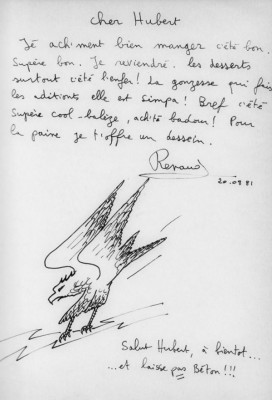 Cher Hubert
Jé achment bien manger c'été bon.
Supère bon. Je reviendré. les desserts
surtout c'été l'enfer! La gonzesse qui fais
les aditions elle est simpa! Bref c'été
Supère cool-balèze, achté badour! Pour
la paine je t'offre un dessein.
Renaud
20.09 81
Salut Hubert, à bientot...
...et laisse pas Béton!!!